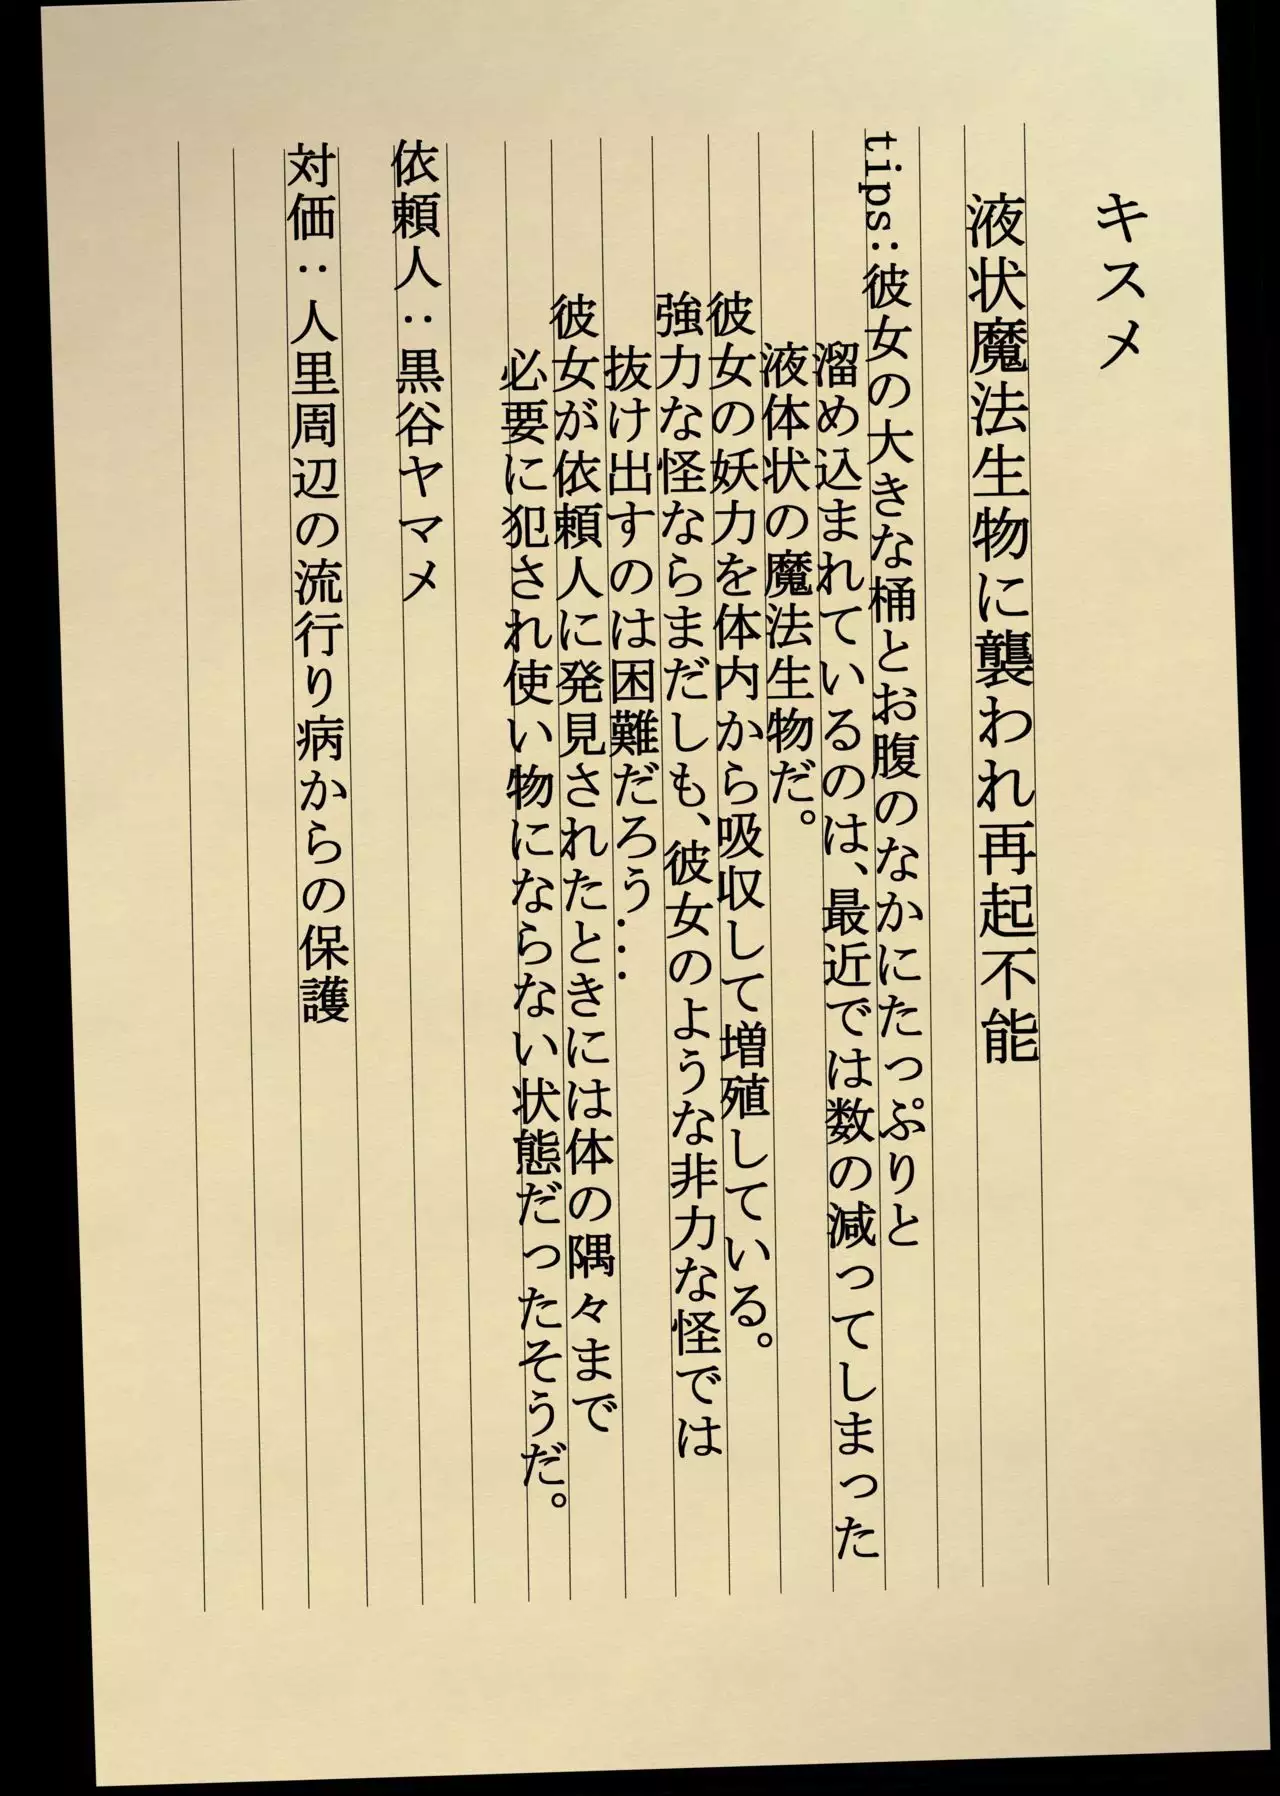 キスメ
液状魔法生物に襲われ再起不能
tips:彼女の大きな桶とお腹のなかにたっぷりと
溜め込まれているのは、最近では数の減ってしまった
液体状の魔法生物だ。
彼女の妖力を体内から吸収して増殖している。
強力な怪ならまだしも、彼女のような非力な怪では
抜け出すのは困難だろう...
彼女が依頼人に発見されたときには体の隅々まで
必要に犯され使い物にならない状態だったそうだ。
依頼人:黒谷ヤマメ
対価:人里周辺の流行り病からの保護